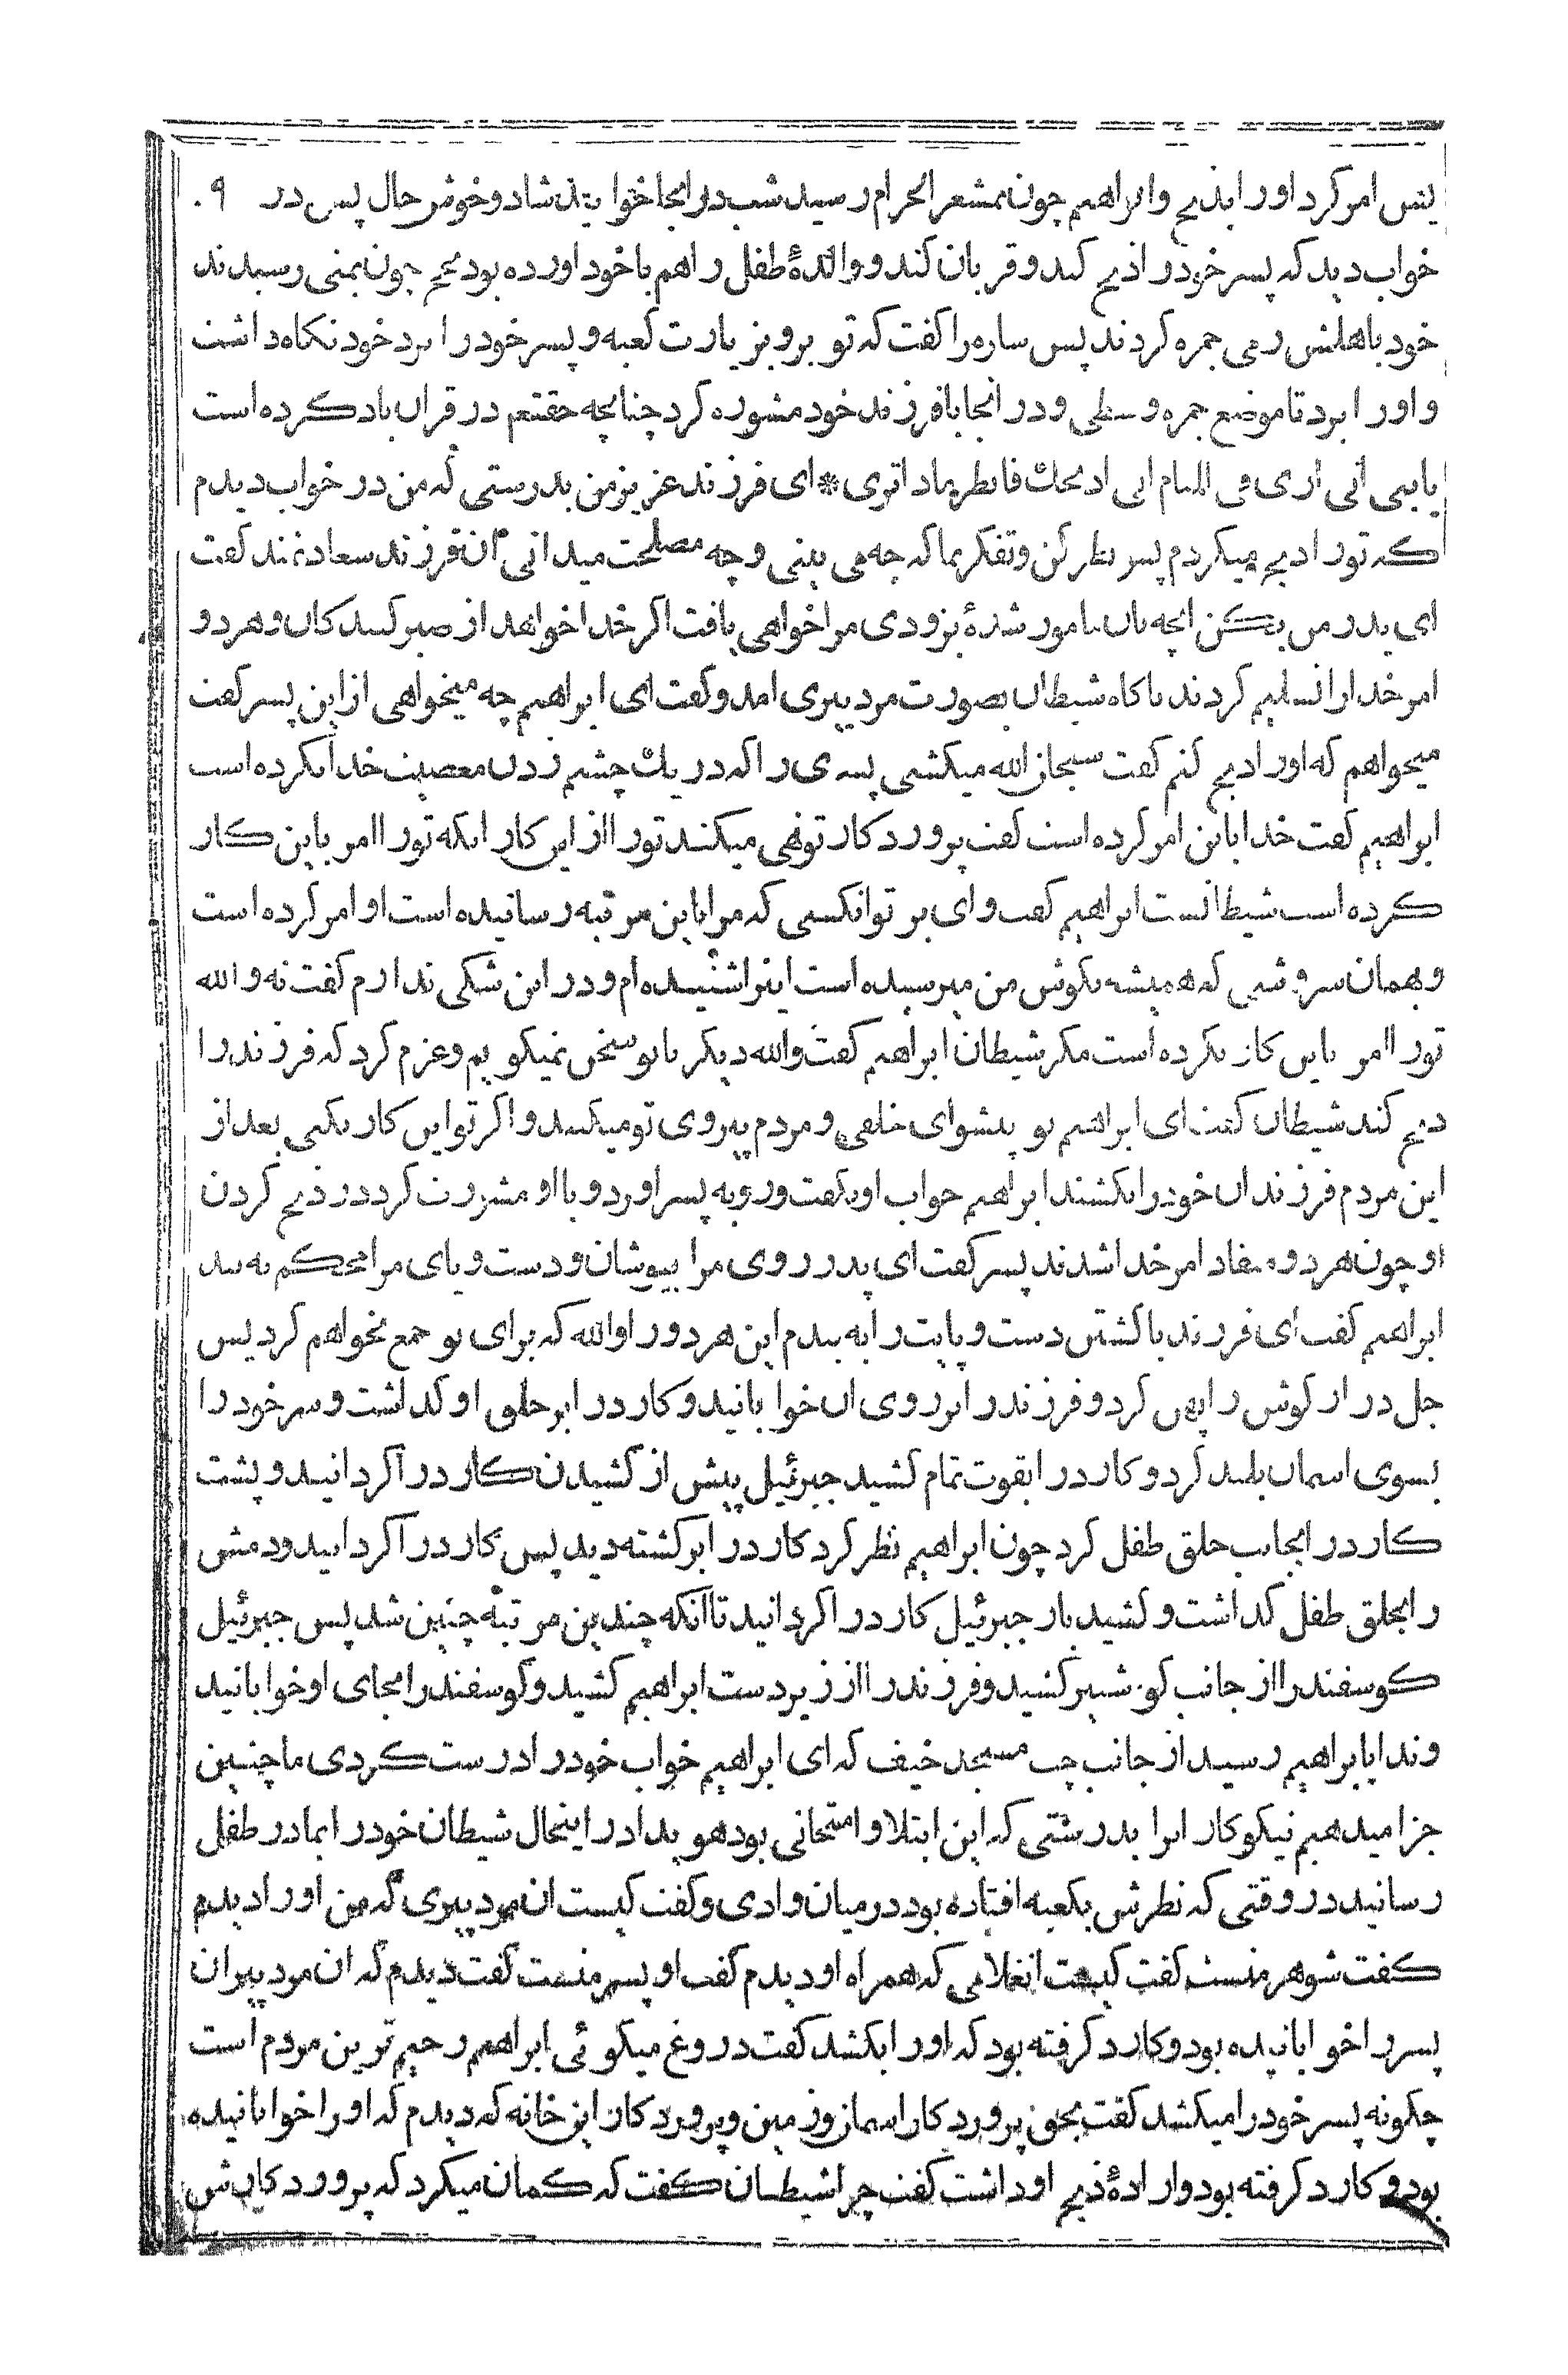 پس امر کرد او را بذبح و ابراهیم چون بمشعر الحرام رسید شب در انجا خوابید شاد و خوش حال پس در ۹۰
خواب دید که پسر خود را ذبح کند و قربان کند و والدهٔ طفل را هم با خود اورده بود بحج چون بمنی رسیدند
خود باهلش رمی جمره کردند پس ساره را کفت که تو برو بزیارت کعبه و پسر خود را نزد خود نکاه داشت
و او را برد تا موضع جمره وسطی و در انجا با فرزند خود مشوره کرد چنانچه حقتعم در قران یاد کرده است
یا بنی انی اری فی المنام انی اذبحك فانظر ماذا تری * ای فرزند عزیز من بدرستی که من در خواب دیدم
که تو را ذبح میکردم پس نظر کن و تفکر نما که چه می بینی و چه مصلحت میدانی ان فرزند سعادتمند کفت
ای پدر من بکن انچه بان مامور شدهٔ بزودی مرا خواهی یافت اکر خدا خواهد از صبر کنندکان و هر دو
امر خدا را تسلیم کردند ناکاه شیطان بصورت مرد پیری امد و کفت ای ابراهیم چه میخواهی از این پسر کفت
میخواهم که او را ذبح کنم کفت سبحان الله میکشی پسری را که در یك چشم زدن معصیت خدا نکرده است
ابراهیم کفت خدا باین امر کرده است کفت پروردکار تو نهی میکند تو را از این کار انکه تو را امر باین کار
کرده است شیطانست ابراهیم کفت وای بر تو انکسی که مرا باین مرتبه رسانیده است او امر کرده است
و همان سروشی که همیشه بکوش من میرسیده است اینرا شنیده ام و در این شکی ندارم کفت نه والله
تو را امر باین کار نکرده است مکر شیطان ابراهیم کفت والله دیکر با تو سخن نمیکویم و عزم کرد که فرزند را
ذبح کند شیطان کفت ای ابراهیم تو پیشوای خلقی و مردم پیروی تو میکنند و اکر تو این کار بکنی بعد از
این مردم فرزندان خود را بکشند ابراهیم جواب او نکفت و رو به پسر اورد و با او مشورت کرد در ذبح کردن
او چون هر دو منقاد امر خدا شدند پسر کفت ای پدر روی مرا بپوشان و دست و پای مرا محکم به بند
ابراهیم کفت ای فرزند با کشتن دست و پایت را به بندم این هر دو را والله که برای تو جمع نخواهم کرد پس
جل دراز کوش را پهن کرد و فرزند را بر روی ان خوابانید و کارد را بر حلق او کذاشت و سر خود را
بسوی اسمان بلند کرد و کارد را بقوت تمام کشید جبرئیل پیش از کشیدن کارد را کردانید و پشت
کارد را بجانب حلق طفل کرد چون ابراهیم نظر کرد کارد را برکشته دید پس کارد را کردانید و دمش
را بحلق طفل کذاشت و کشید باز جبرئیل کارد را کردانید تا انکه چندین مرتبه چنین شد پس جبرئیل
کوسفند را از جانب کوه ثبیر کشید و فرزند را از زیر دست ابراهیم کشید و کوسفند را بجای او خوابانید
و ندا بابراهیم رسید از جانب چپ مسجد خیف که ای ابراهیم خواب خود را درست کردی ما چنین
جزا میدهیم نیکوکارانرا بدرستی که این ابتلا و امتحانی بود هویدا در اینحال شیطان خود را بمادر طفل
رسانید در وقتی که نظرش بکعبه افتاده بود در میان وادی و کفت کیست ان مرد پیری که من او را دیدم
کفت شوهر منست کفت کیست انغلامی که همراه او دیدم کفت او پسر منست کفت دیدم که ان مرد پیر ان
پسر را خوابانیده بود و کارد کرفته بود که او را بکشد کفت دروغ میکوئی ابراهیم رحیم ترین مردم است
چکونه پسر خود را میکشد کفت بحق پروردکار اسمان و زمین و پروردکار این خانه که دیدم که او را خوابانیده
بود و کارد کرفته بود و ارادهٔ ذبح او داشت کفت چرا شیطان کفت که کمان میکرد که پروردکارش